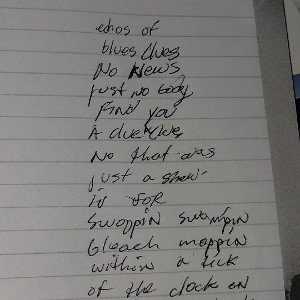 echos of
blues clues
No News
just no body
Find you
A clue clue
no that was
just a show
is for
swoppin swampin
bleach moppin
within a tick
of the clock en